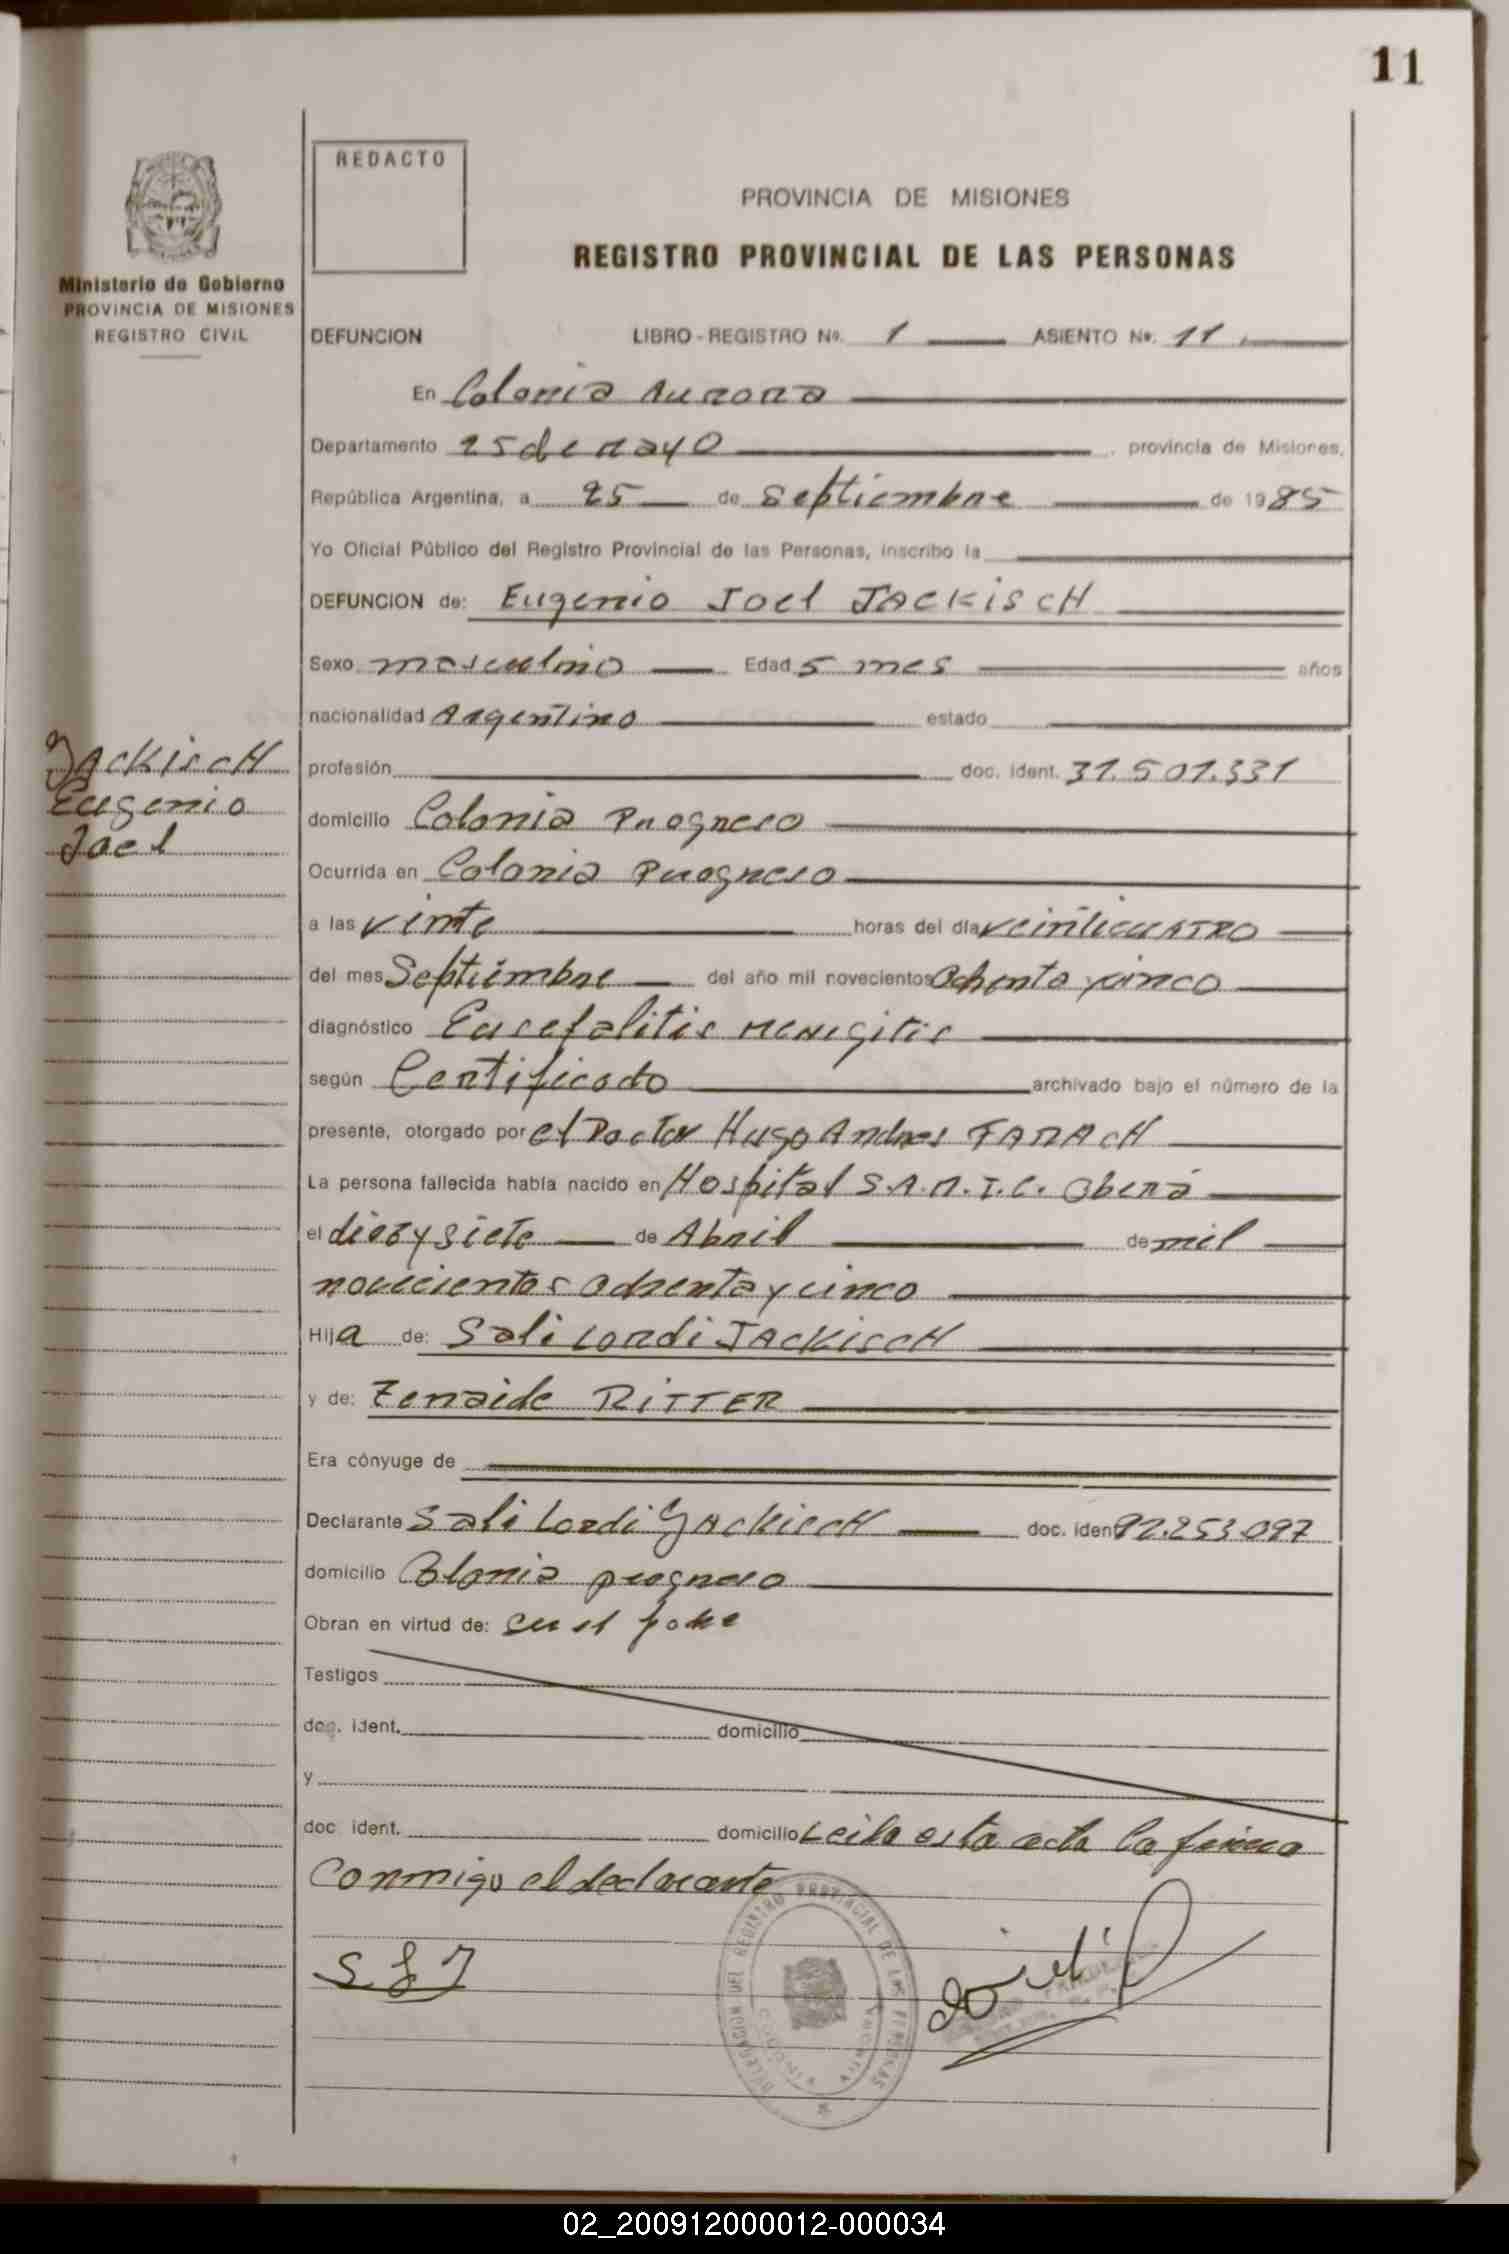 11
REDACTO
PROVINCIA DE MISIONES
REGISTRO PROVINCIAL DE LAS PERSONAS
Ministerio de Gobierno
PROVINCIA DE MISIONES
REGISTRO CIVIL
DEFUNCION LIBRO - REGISTRO Nº. 1 ASIENTO Nº. 11
En Colonia Aurora
Departamento 25 de mayo, provincia de Misiones,
República Argentina, a 25 de Septiembre de 1985
Yo Oficial Público del Registro Provincial de las Personas, inscribo la
DEFUNCION de: Eugenio Joel JACKiscH
Sexo masculino Edad 5 mes años
nacionalidad Argentino estado
JAckiscH
Eugenio
Joel
profesión doc. ident. 31.501.331
domicilio Colonia Progreso
Ocurrida en Colonia Progreso
a las veinte horas del día veinticuatro
del mes Septiembre del año mil novecientos Ochenta y cinco
diagnóstico Encefalitis Menigitis
según Certificado archivado bajo el número de la
presente, otorgado por el Doctor Hugo Andres FARACH
La persona fallecida había nacido en Hospital S.A.M.I.C. Oberá
el diez y siete de Abril de mil
novecientos ochenta y cinco
Hija de: Sali Lordi JAckiscH
y de: Zenaide RITTER
Era cónyuge de
Declarante Sali Lordi JAckiscH doc. ident 92.253.097
domicilio Colonia progreso
Obran en virtud de: ser el padre
Testigos
doc. ident. domicilio
y
doc. ident. domicilio Leida esta acta la firma
Conmigo el declarante
S L J
DELEGACION DEL REGISTRO PROVINCIAL DE LAS PERSONAS
02_200912000012-000034